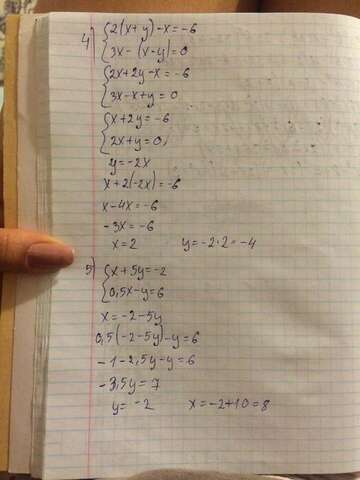 4) { 2(x+y)-x=-6
{ 3x-(x-y)=0
{ 2x+2y-x=-6
{ 3x-x+y=0
{ x+2y=-6
{ 2x+y=0
y=-2x
x+2(-2x)=-6
x-4x=-6
-3x=-6
x=2 y=-2·2=-4
5) { x+5y=-2
{ 0,5x-y=6
x=-2-5y
0,5(-2-5y)-y=6
-1-2,5y-y=6
-3,5y=7
y=-2 x=-2+10=8